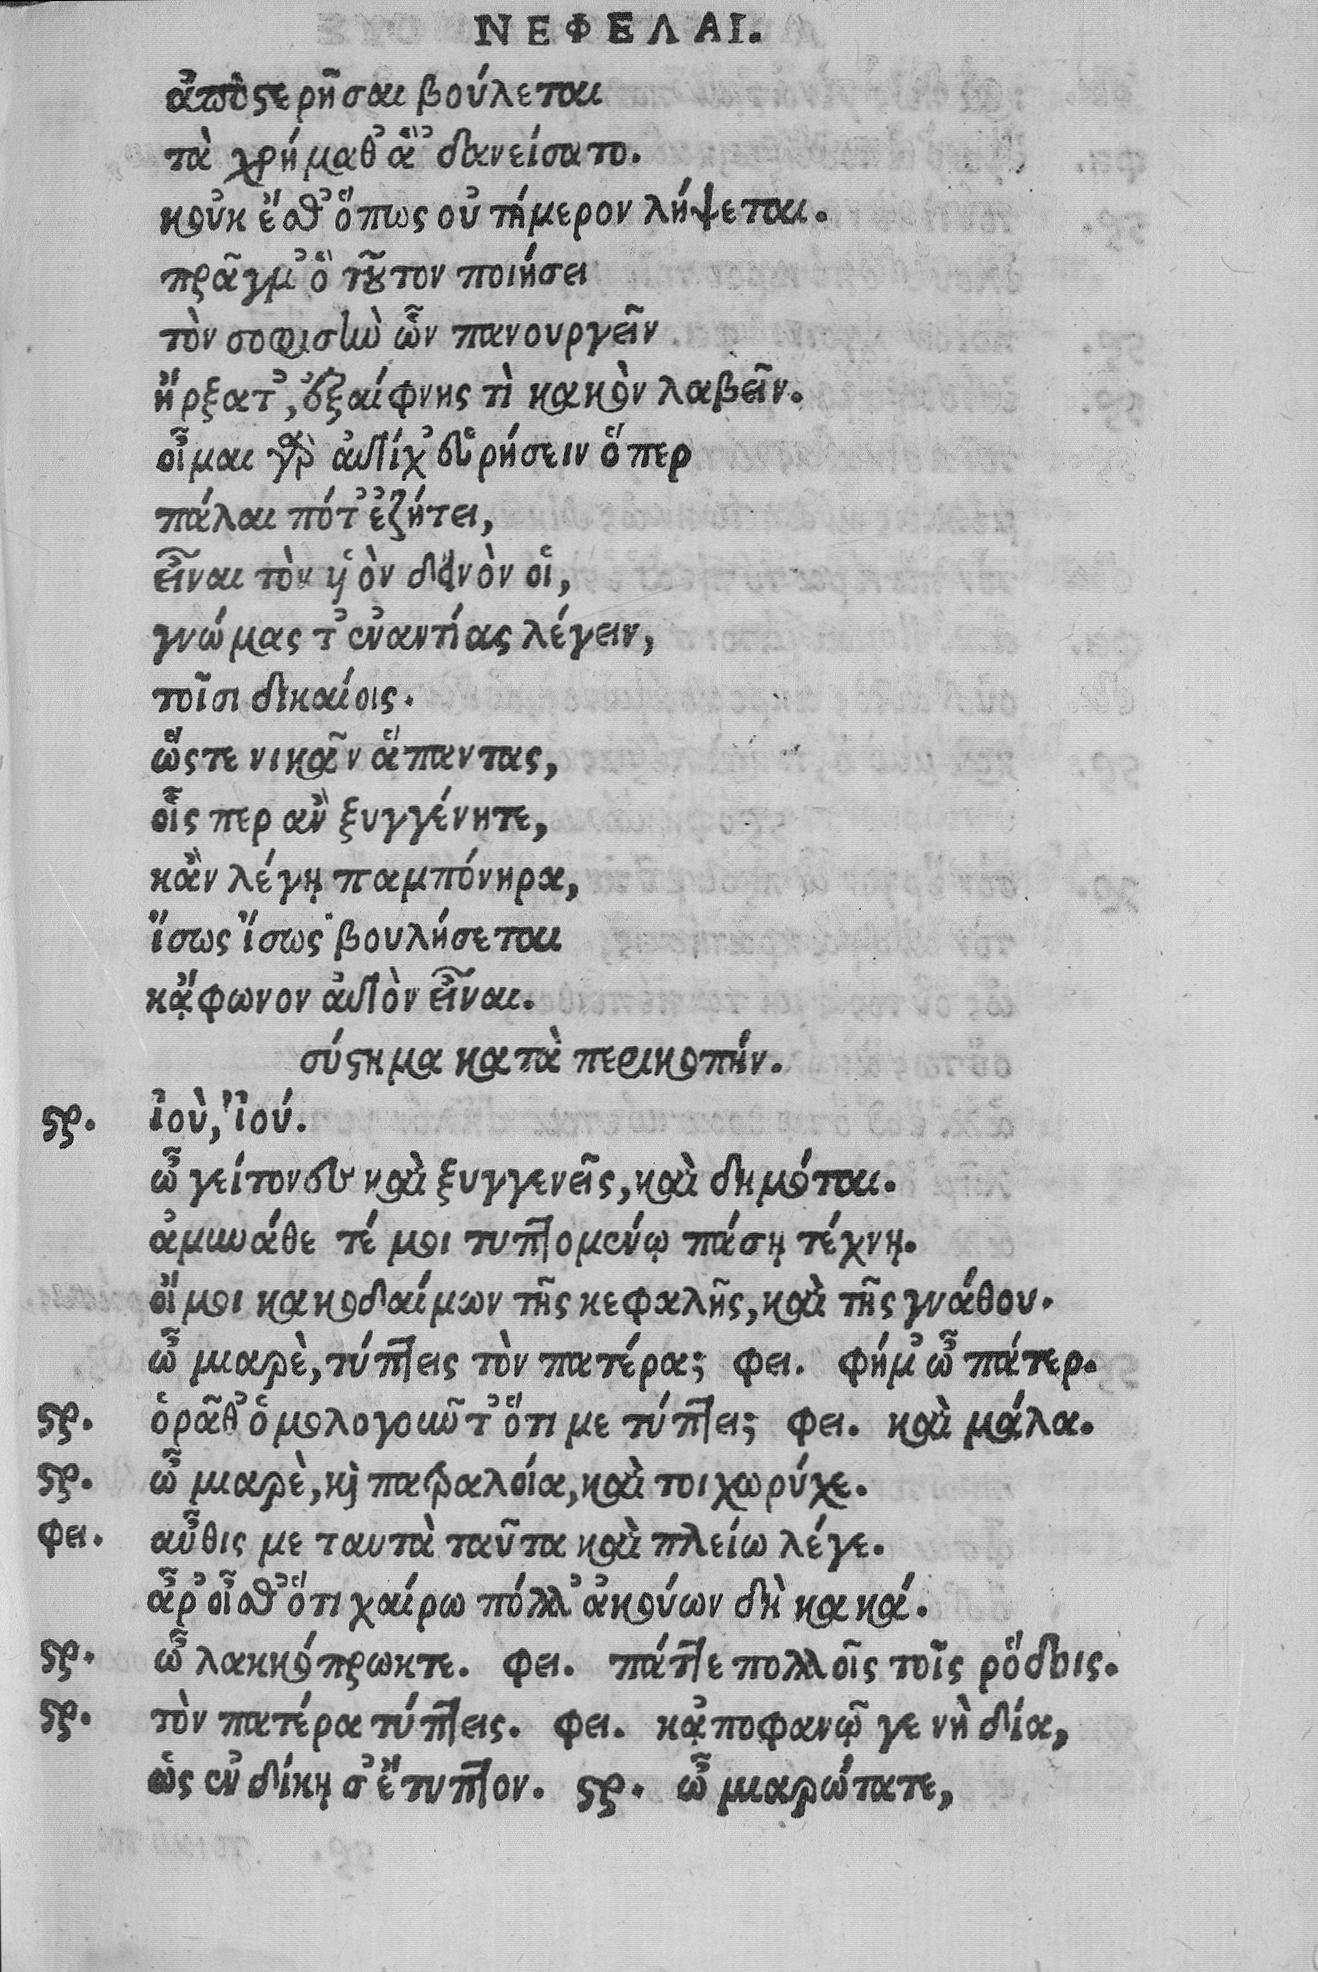 ΝΕΦΕΛΑΙ.
ἀποστερῆσαι βούλεται
τὰ χρήμαθ᾽ ἃ᾽ δανείσατο.
κοὐκ ἔσθ᾽ ὅπως οὐ τήμερον λήψεται.
πρᾶγμ᾽ ὃ τοῦτον ποιήσει
τὸν σοφιστὴν ὧν πανουργεῖν
ἤρξατ᾽, ἐξαίφνης τὶ κακὸν λαβεῖν.
οἶμαι γὰρ αὐτίχ᾽ εὑρήσειν ὅπερ
πάλαι πότ᾽ ἐζήτει,
εἶναι τὸν ὑὸν δεινὸν οἱ,
γνώμας τ᾽ ἐναντίας λέγειν,
τοῖσι δικαίοις.
ὥστε νικᾶν ἅπαντας,
οἷς περ ἂν ξυγγένητε,
κἂν λέγῃ παμπόνηρα,
ἴσως ἴσως βουλήσεται
κᾄφωνον αὐτὸν εἶναι.
σύστημα κατὰ περικοπήν.
στρ. ἰοὺ, ἰού.
ὦ γείτονες καὶ ξυγγενεῖς, καὶ δημόται.
ἀμυνάθε τέ μοι τυπτομένῳ πάσῃ τέχνῃ.
οἴμοι κακοδαίμων τῆς κεφαλῆς, καὶ τῆς γνάθου.
ὦ μιαρὲ, τύπτεις τὸν πατέρα; φει. φήμ᾽ ὦ πάτερ.
στρ. ὁρᾶθ᾽ ὁμολογοῦντ᾽ ὅτι με τύπτει; φει. καὶ μάλα.
στρ. ὦ μιαρὲ, καὶ πατραλοία, καὶ τοιχωρύχε.
φει. αὖθις με ταυτὰ ταῦτα καὶ πλείω λέγε.
ἆρ᾽ οἶσθ᾽ ὅτι χαίρω πόλλ᾽ ἀκούων δὴ κακά.
στρ. ὦ λακκόπρωκτε. φει. πάττε πολλοῖς τοῖς ῥόδοις.
στρ. τὸν πατέρα τύπτεις. φει. κᾀποφανῶ γε νὴ δία,
ὡς ἐν δίκῃ σ᾽ ἔτυπτον. στρ. ὦ μιαρώτατε,